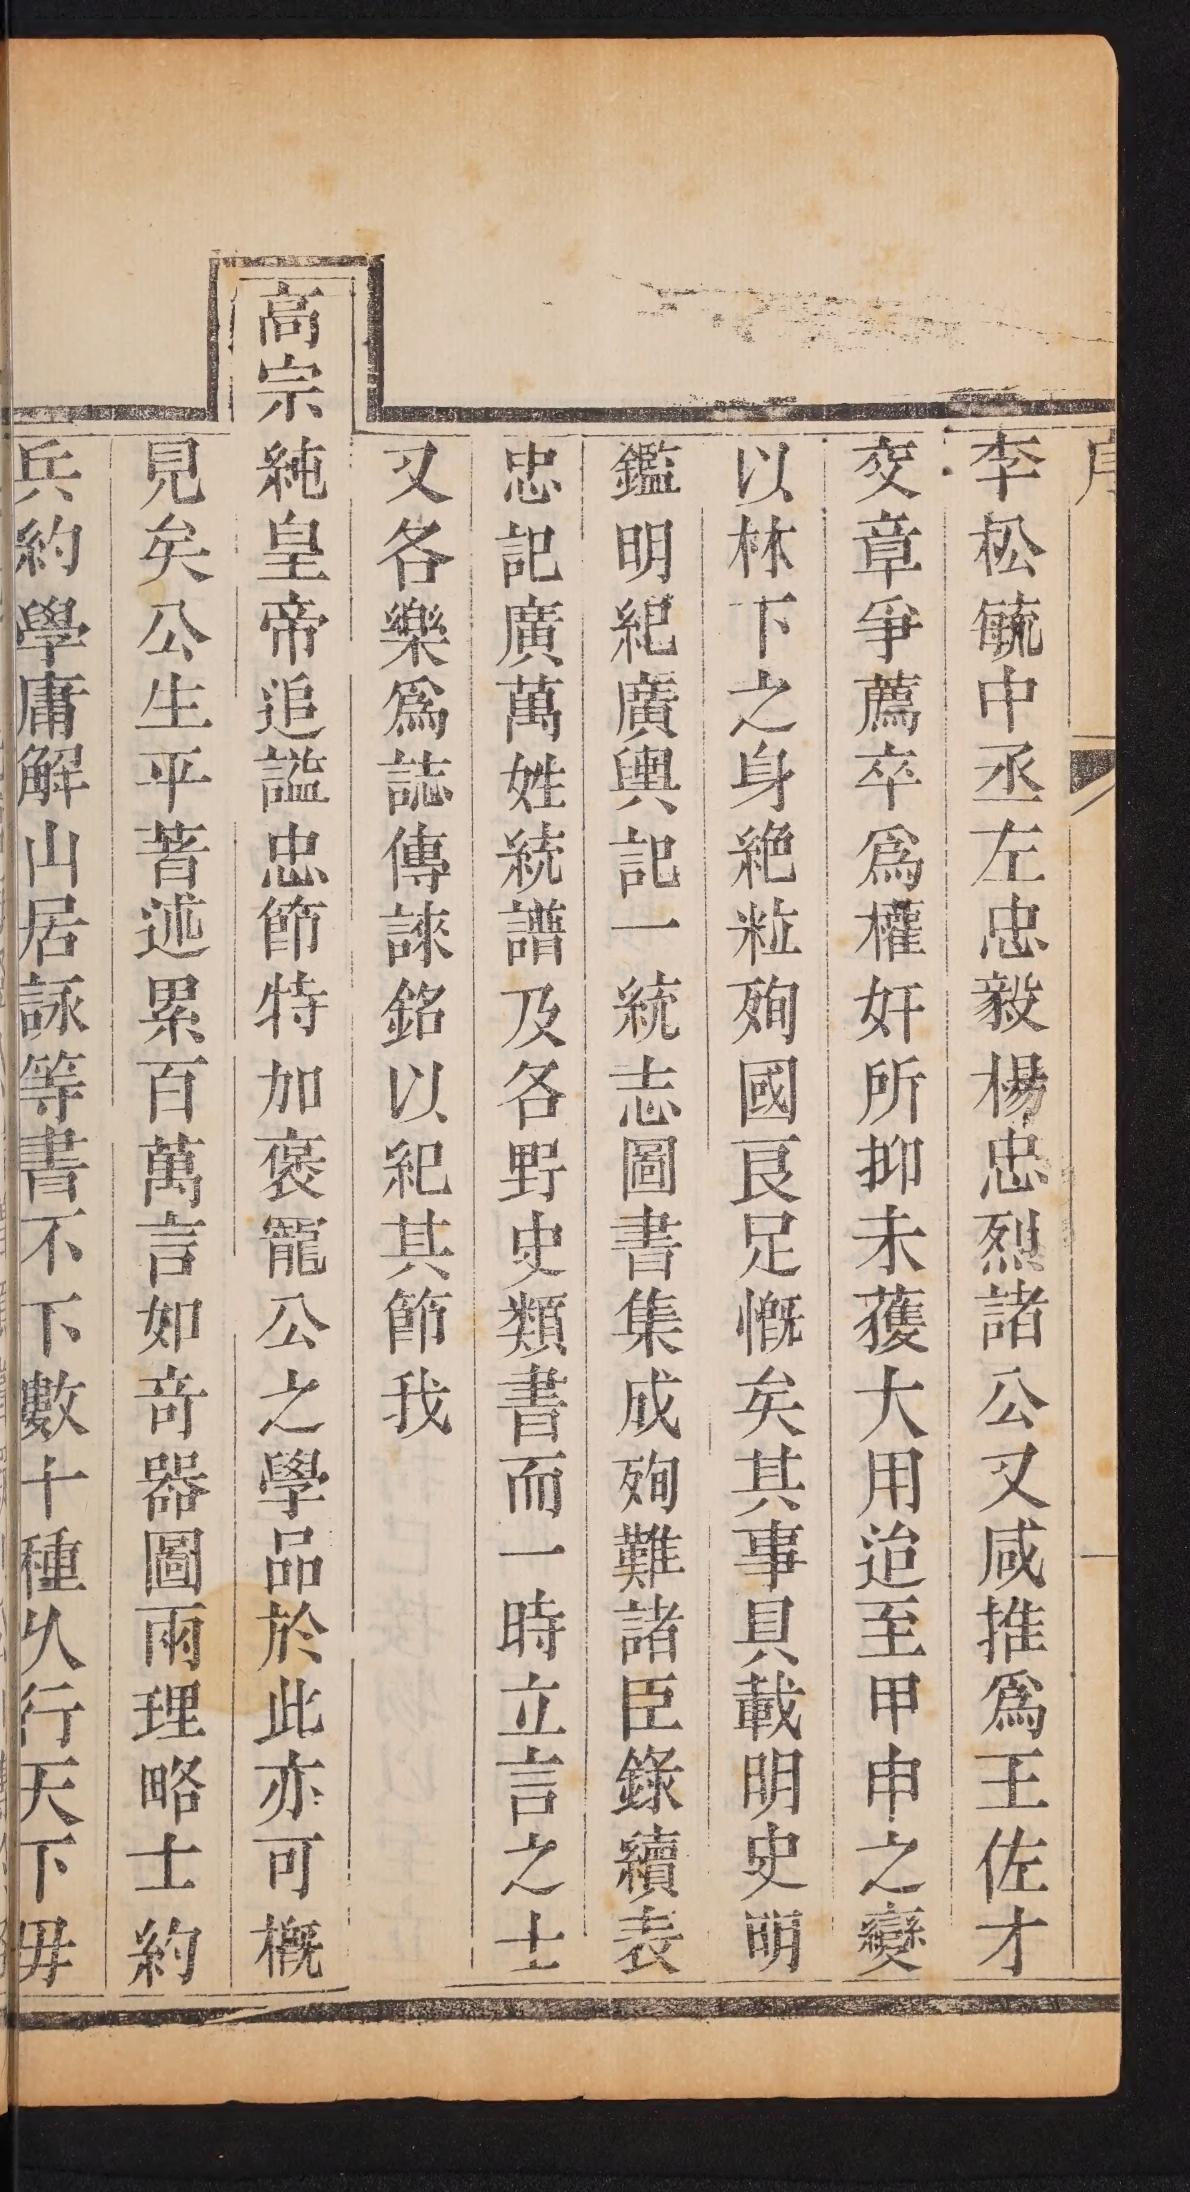 序
李松毓中丞左忠毅楊忠烈諸公又咸推爲王佐才
交章爭薦卒爲權奸所抑未獲大用迨至甲申之變
以林下之身絶粒殉國良足慨矣其事具載明史明
鑑明紀廣輿記一統志圖書集成殉難諸臣錄續表
忠記廣萬姓統譜及各野史類書而一時立言之士
又各樂爲誌傳誄銘以紀其節我
高宗純皇帝追謚忠節特加褒寵公之學品於此亦可概
見矣公生平著述累百萬言如奇器圖兩理略士約
兵約學庸解山居詠等書不下數十種乆行天下毋